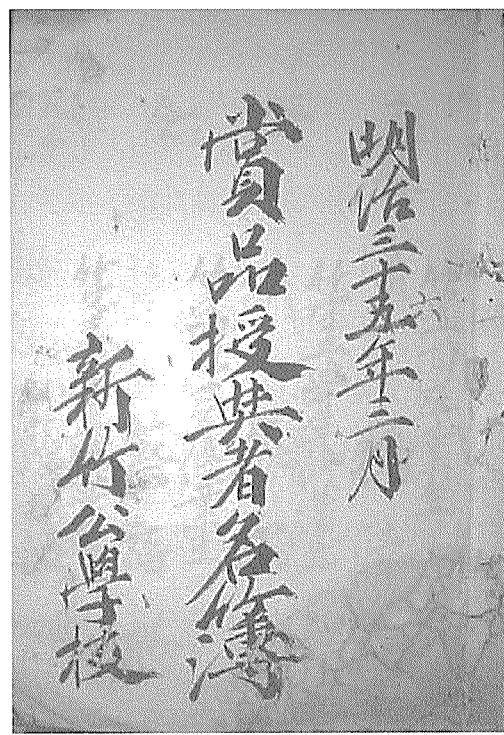 明治三十五年三月
六
賞品授與者名簿
新竹公學校